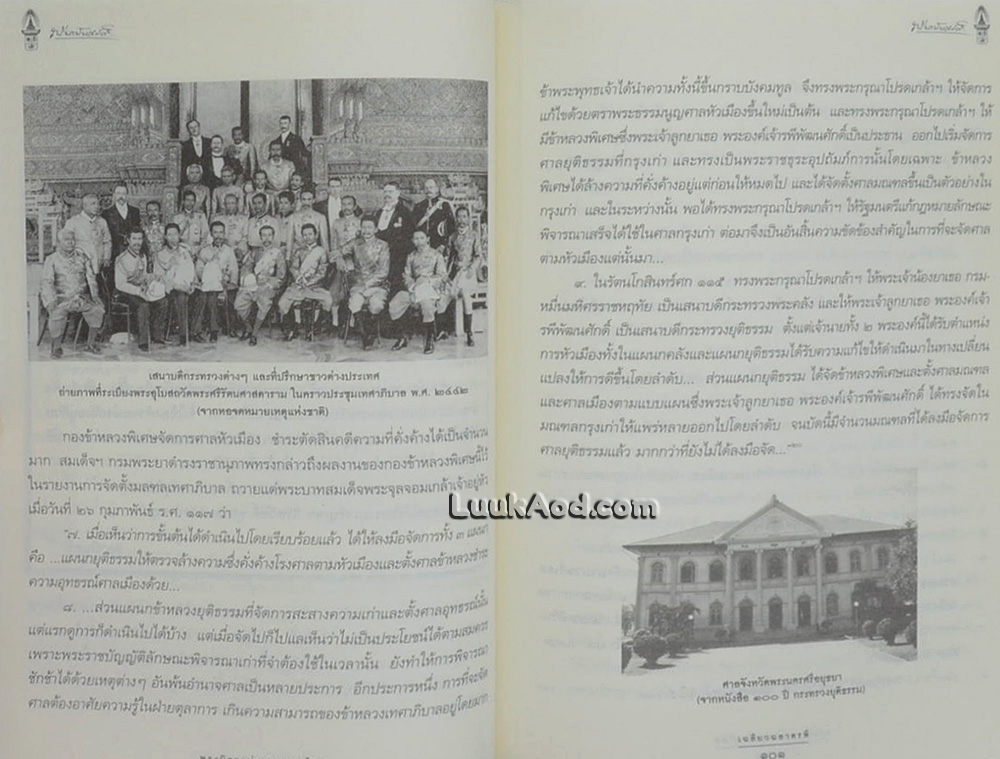 เสนาบดีกระทรวงต่างๆ และที่ปรึกษาชาวต่างประเทศ
ถ่ายภาพที่ระเบียงพระอุโบสถวัดพระศรีรัตนศาสดาราม ในคราวประชุมเทศาภิบาล พ.ศ. ๒๔๔๒
(จากหอจดหมายเหตุแห่งชาติ)
กองข้าหลวงพิเศษจัดการศาลหัวเมือง ชำระตัดสินคดีความที่คั่งค้างได้เป็นจำนวน
มาก สมเด็จฯ กรมพระยาดำรงราชานุภาพทรงกล่าวถึงผลงานของกองข้าหลวงพิเศษนี้ไว้
ในรายงานการจัดตั้งมลฑลเทศาภิบาล ถวายแด่พระบาทสมเด็จพระจุลจอมเกล้าเจ้าอยู่หัว
เมื่อวันที่ ๒๖ กุมภาพันธ์ ร.ศ. ๑๑๗ ว่า
"๗. เมื่อเห็นว่าการขั้นต้นได้ดำเนินไปโดยเรียบร้อยแล้ว ได้ให้ลงมือจัดการทั้ง ๓ แผนก
คือ ...แผนกยุติธรรมให้ตรวจล้างความซึ่งคั่งค้างโรงศาลตามหัวเมืองและตั้งศาลข้าหลวงชำระ
ความอุทธรณ์ศาลเมืองด้วย...
๘. ...ส่วนแผนกข้าหลวงยุติธรรมที่จัดการสะสางความเก่าและตั้งศาลอุทธรณ์นั้น
แต่แรกดูการก็ดำเนินไปได้บ้าง แต่เมื่อจัดไปก็ไปแลเห็นว่าไม่เป็นประโยชน์ได้ตามสมควร
เพราะพระราชบัญญัติลักษณะพิจารณาเก่าที่จำต้องใช้ในเวลานั้น ยังทำให้การพิจารณา
ชักช้าได้ด้วยเหตุต่างๆ อันพ้นอำนาจศาลเป็นหลายประการ อีกประการหนึ่ง การที่จะจัด
ศาลต้องอาศัยความรู้ในฝ่ายตุลาการ เกินความสามารถของข้าหลวงเทศาภิบาลอยู่โดยมาก
ข้าพระพุทธเจ้าได้นำความทั้งนี้ขึ้นกราบบังคมทูล จึงทรงพระกรุณาโปรดเกล้าฯ ให้จัดการ
แก้ไขด้วยตราพระธรรมนูญศาลหัวเมืองขึ้นใหม่เป็นต้น และทรงพระกรุณาโปรดเกล้าฯ ให้
มีข้าหลวงพิเศษซึ่งพระเจ้าลูกยาเธอ พระองค์เจ้ารพีพัฒนศักดิ์เป็นประธาน ออกไปเริ่มจัดการ
ศาลยุติธรรมที่กรุงเก่า และทรงเป็นพระราชธุระอุปถัมภ์การนั้นโดยเฉพาะ ข้าหลวง
พิเศษได้ล้างความที่คั่งค้างอยู่แต่ก่อนให้หมดไป และได้จัดตั้งศาลมณฑลขึ้นเป็นตัวอย่างใน
กรุงเก่า และในระหว่างนั้น พอได้ทรงพระกรุณาโปรดเกล้าฯ ให้รัฐมนตรีแก้กฎหมายลักษณะ
พิจารณาเสร็จได้ใช้ในศาลกรุงเก่า ต่อมาจึงเป็นอันสิ้นความขัดข้องสำคัญในการที่จะจัดศาล
ตามหัวเมืองแต่นั้นมา...
๙. ในรัตนโกสินทร์ศก ๑๑๕ ทรงพระกรุณาโปรดเกล้าฯ ให้พระเจ้าน้องยาเธอ กรม-
หมื่นมหิศรราชหฤทัย เป็นเสนาบดีกระทรวงพระคลัง และให้พระเจ้าลูกยาเธอ พระองค์เจ้า
รพีพัฒนศักดิ์ เป็นเสนาบดีกระทรวงยุติธรรม ตั้งแต่เจ้านายทั้ง ๒ พระองค์นี้ได้รับตำแหน่ง
การหัวเมืองทั้งในแผนกคลังและแผนกยุติธรรมได้รับความแก้ไขให้ดำเนินมาในทางเปลี่ยน
แปลงให้การดีขึ้นโดยลำดับ... ส่วนแผนกยุติธรรม ได้จัดข้าหลวงพิเศษและตั้งศาลมณฑล
และศาลเมืองตามแบบแผนซึ่งพระเจ้าลูกยาเธอ พระองค์เจ้ารพีพัฒนศักดิ์ ได้ทรงจัดใน
มณฑลกรุงเก่าให้แพร่หลายออกไปโดยลำดับ จนบัดนี้มีจำนวนมณฑลที่ได้ลงมือจัดการ
ศาลยุติธรรมแล้ว มากกว่าที่ยังไม่ได้ลงมือจัด..."
LuukAod.com
ศาลจังหวัดพระนครศรีอยุธยา
(จากหนังสือ ๑๐๐ ปี กระทรวงยุติธรรม)
เฉลิมวนอาศรพี
๑๐๑